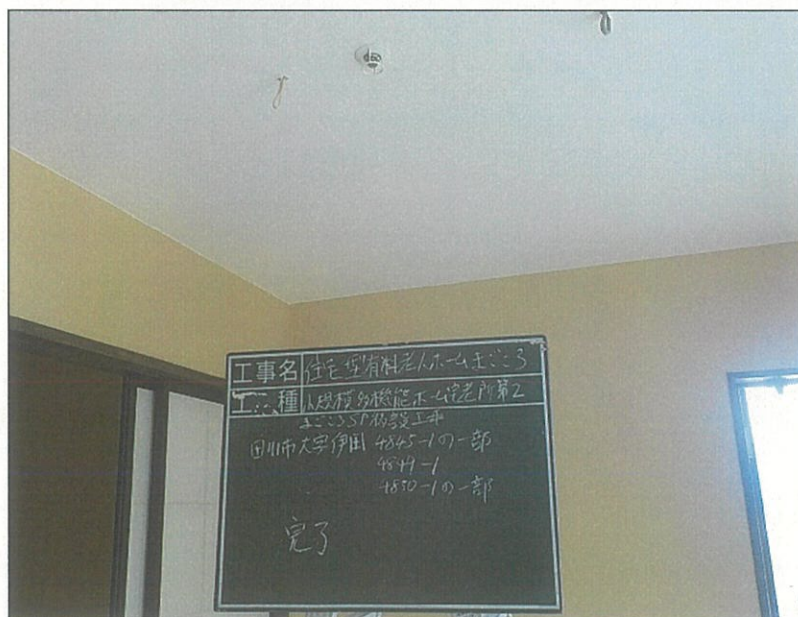 工事名 住宅型有料老人ホームまごころ
工 種 小規模多機能ホーム宅老所第2
まごころSP設工事
田川市大字伊田 4845-1の一部
4849-1
4850-1の一部
完了